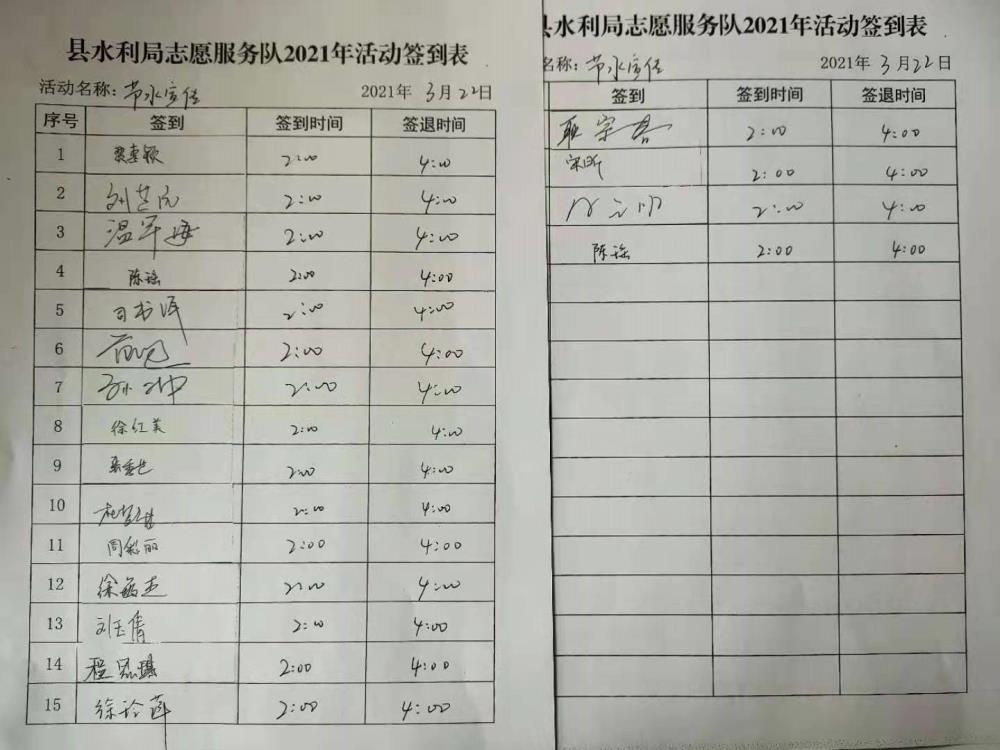 县水利局志愿服务队2021年活动签到表
活动名称：节水宣传 2021年 3月22日
序号 签到 签到时间 签退时间
1 2:00 4:00
2 2:00 4:00
3 温军海 2:00 4:00
4 陈瑶 2:00 4:00
5 司书泽 2:00 4:00
6 2:00 4:00
7 孙冲 2:00 4:00
8 徐红美 2:00 4:00
9 2:00 4:00
10 2:00 4:00
11 周彩丽 2:00 4:00
12 2:00 4:00
13 刘玉倩 2:00 4:00
14 2:00 4:00
15 2:00 4:00
县水利局志愿服务队2021年活动签到表
名称：节水宣传 2021年 3月22日
签到 签到时间 签退时间
2:00 4:00
宋昕 2:00 4:00
2:00 4:00
陈瑶 2:00 4:00